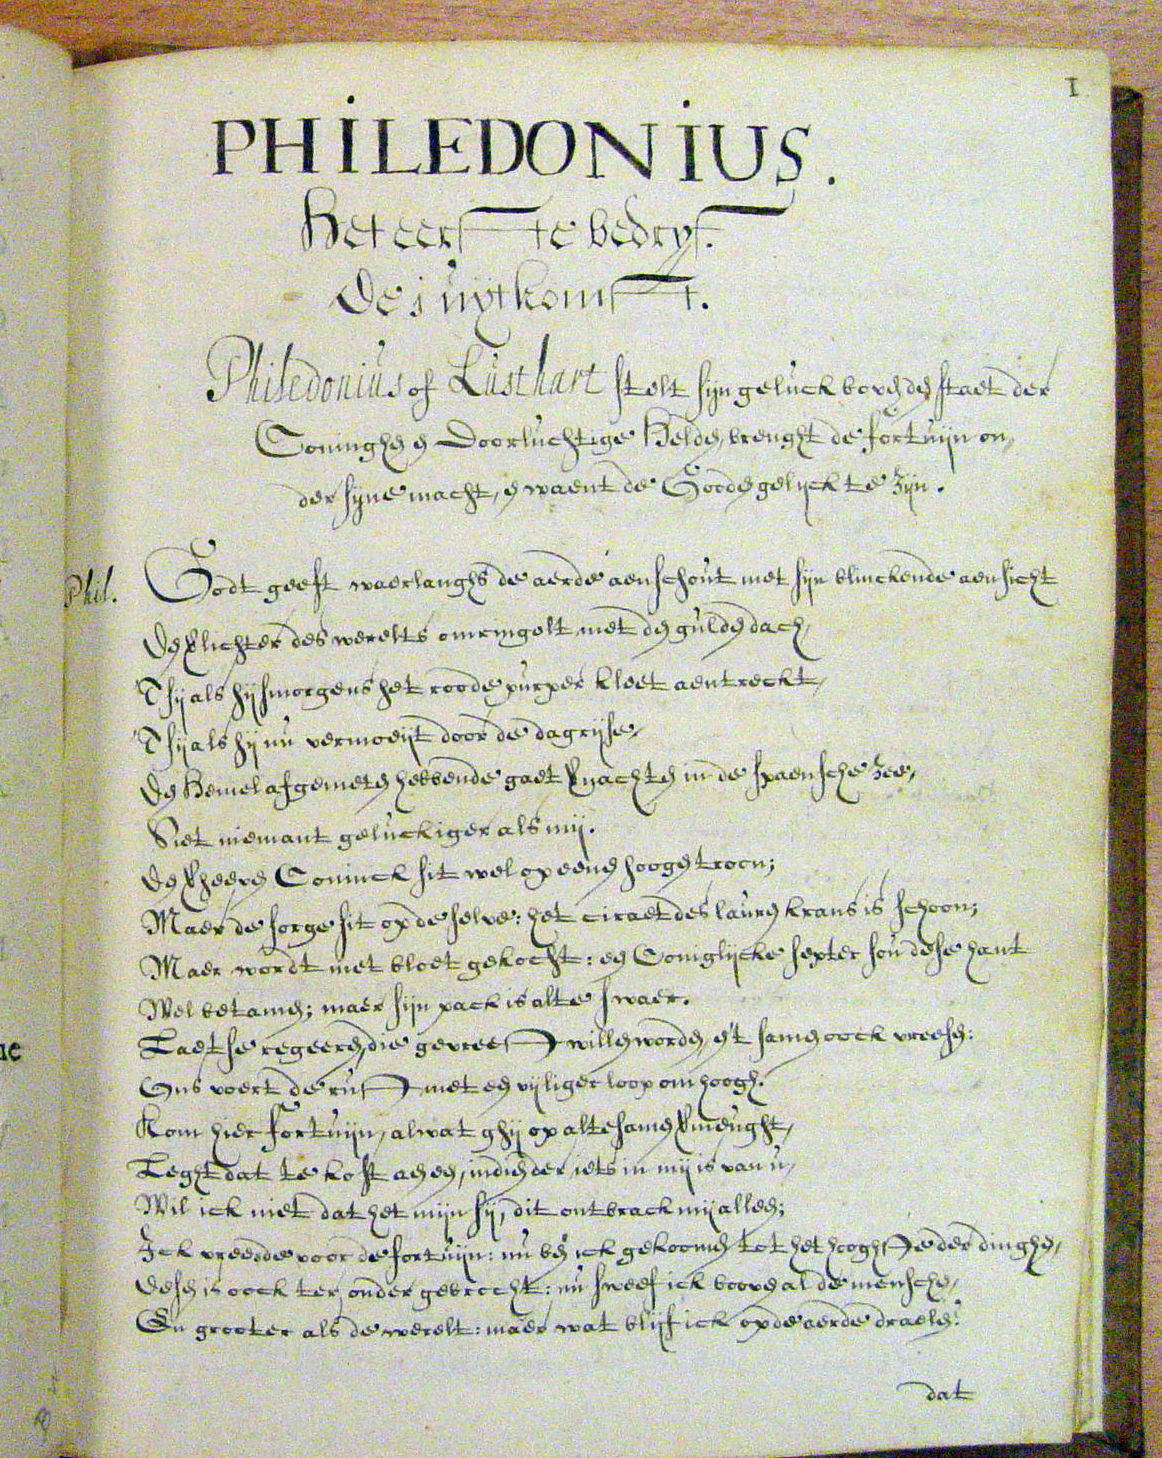 1
PHILEDONIUS.
Het eerste bedryf.
De j uytkomst.
Philedonius of Lusthart stelt sijn geluck boven den staet der
Coninghen en Doorluchtige Helden, brenght de fortuijn on,
der sijne macht, en waent de Goden gelyck te zijn.
Phil. Godt geeft waerlanghs de aerde aenschout met sijn blinckende aensicht
De lichter des werelts omringelt met den gulden dach,
'T sij als hij smorgens het roode purper kleet aentreckt,
'T sij als hij nu vermoeijt door de dagrijse,
Den Hemel afgemeten hebbende gaet vernachten in de spaensche zee,
Siet niemant geluckiger als mij.
Den verheven Coninck sit wel op eenen hoogen troon;
Maer de sorge sit op de selve: het ciraet des lauren krans is schoon;
Maer wordt met bloet gekocht: een Coniglijcke septer sou dese hant
Wel betamen; maer sijn pack is al te swaer.
Laet se regeeren, die gevreest willen worden, en 't samen oock vreesen:
Ons voert de rust met een vijliger loop om hoogh.
Kom hier fortuijn, alwat ghij op altesamen vermeught,
Leght dat te kost aen een, indien der iets in mij is van u,
Wil ick niet dat het mijn sij, dit ontbrack mij alleen;
Ick vreesde voor de fortuijn: nu ben ick gekoomen tot het hooghste der dinghen,
Desen is oock ter onder gebrocht: nu sweef ick boove al de menschen,
En grooter als de werelt: maer wat blijf ick op de aerde draelen?
dat